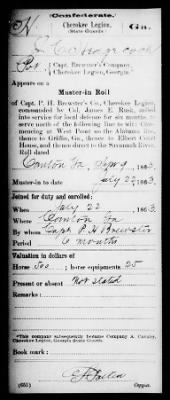 (Confederate.)
H Cherokee Legion, Ga.
(State Guards.)
Pvt., Capt. Brewster's Company,
Cherokee Legion, Georgia.*
Appears on a
Muster-in Roll
of Capt. P. H. Brewster's Co., Cherokee Legion,
commanded by Col. James E. Rusk, called
into service for local defense for six months, to
serve north of the following line to wit: Com-
mencing at West Point on the Alabama line,
thence to Griffin, Ga., thence to Elbert Court
House, and thence direct to the Savannah River.
Roll dated
Canton Ga, Sept 9, 1863.
Muster-in to date July 22, 1863.
Joined for duty and enrolled:
When July 22, 1863.
Where Canton Ga
By whom Capt. P H Brewster
Period 6 months
Valuation in dollars of
Horse 300; horse equipments 25
Present or absent Not stated
Remarks:
*This company subsequently became Company A, Cavalry,
Cherokee Legion, Georgia State Guards.
Book mark:
(651) Copyist.